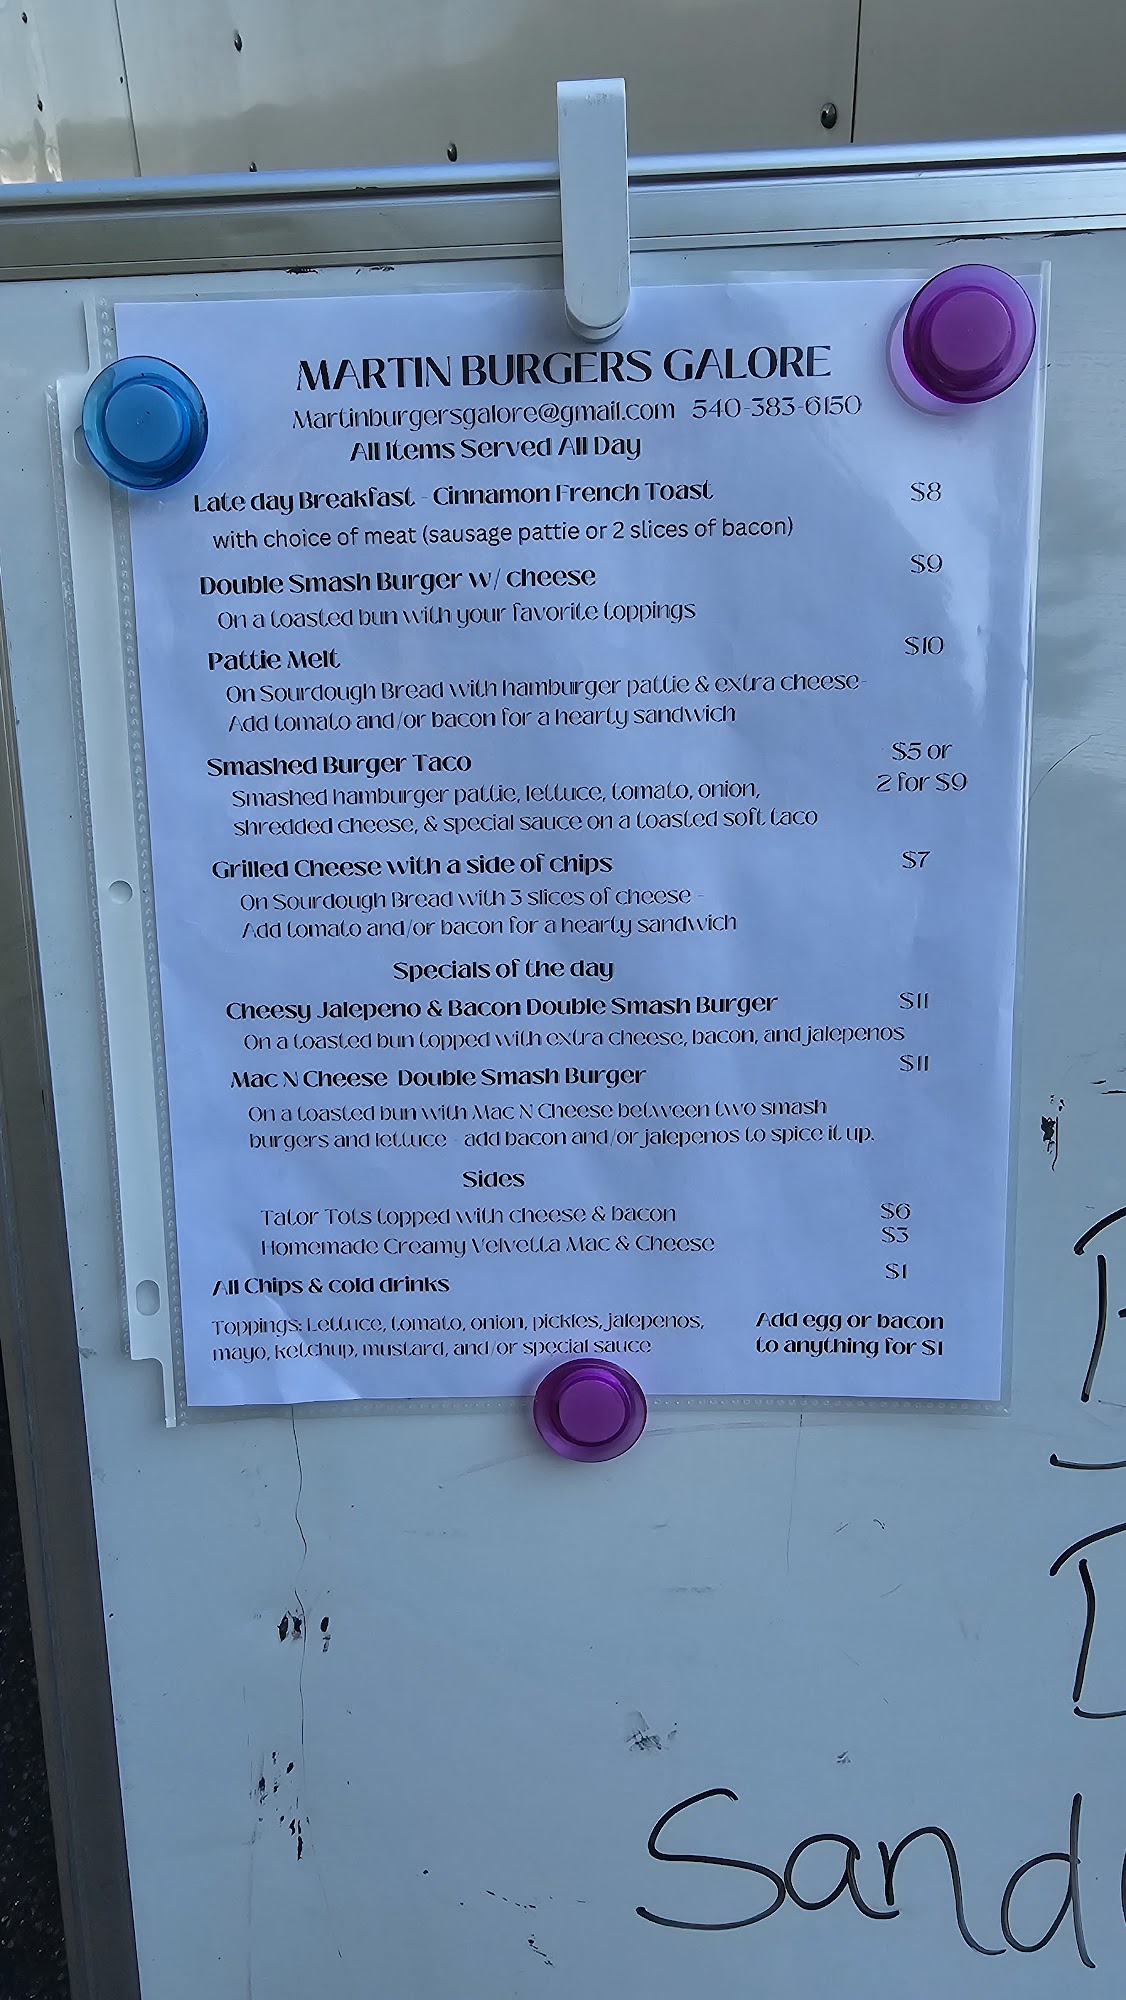 MARTIN BURGERS GALORE
Martinburgersgalore@gmail.com 540-383-6150
All Items Served All Day
Late day Breakfast - Cinnamon French Toast $8
with choice of meat (sausage pattie or 2 slices of bacon)
Double Smash Burger w/ cheese $9
On a toasted bun with your favorite toppings
Pattie Melt $10
On Sourdough Bread with hamburger pattie & extra cheese-
Add tomato and/or bacon for a hearty sandwich
Smashed Burger Taco $5 or
2 for $9
Smashed hamburger pattie, lettuce, tomato, onion,
shredded cheese, & special sauce on a toasted soft taco
Grilled Cheese with a side of chips $7
On Sourdough Bread with 3 slices of cheese -
Add tomato and/or bacon for a hearty sandwich
Specials of the day
Cheesy Jalepeno & Bacon Double Smash Burger $11
On a toasted bun topped with extra cheese, bacon, and jalepenos
Mac N Cheese Double Smash Burger $11
On a toasted bun with Mac N Cheese between two smash
burgers and lettuce - add bacon and/or jalepenos to spice it up.
Sides
Tator Tots topped with cheese & bacon $6
Homemade Creamy Velvetta Mac & Cheese $3
All Chips & cold drinks $1
Toppings: Lettuce, tomato, onion, pickles, jalepenos,
mayo, ketchup, mustard, and/or special sauce
Add egg or bacon
to anything for $1
Sand